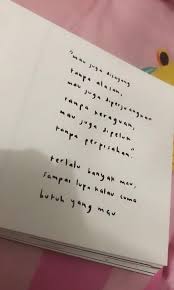 "mau juga disayang
tanpa alasan,
mau juga diperjuangkan
tanpa keraguan,
mau juga dipeluk
tanpa perpisahan."
terlalu banyak mau,
sampai lupa kalau cuma
butuh yang mau